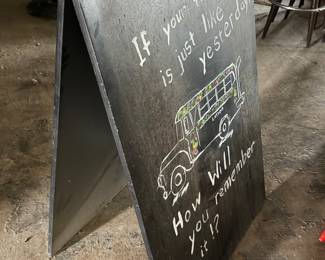 If your
is just like
yesterday
How Will
you remember
it!?